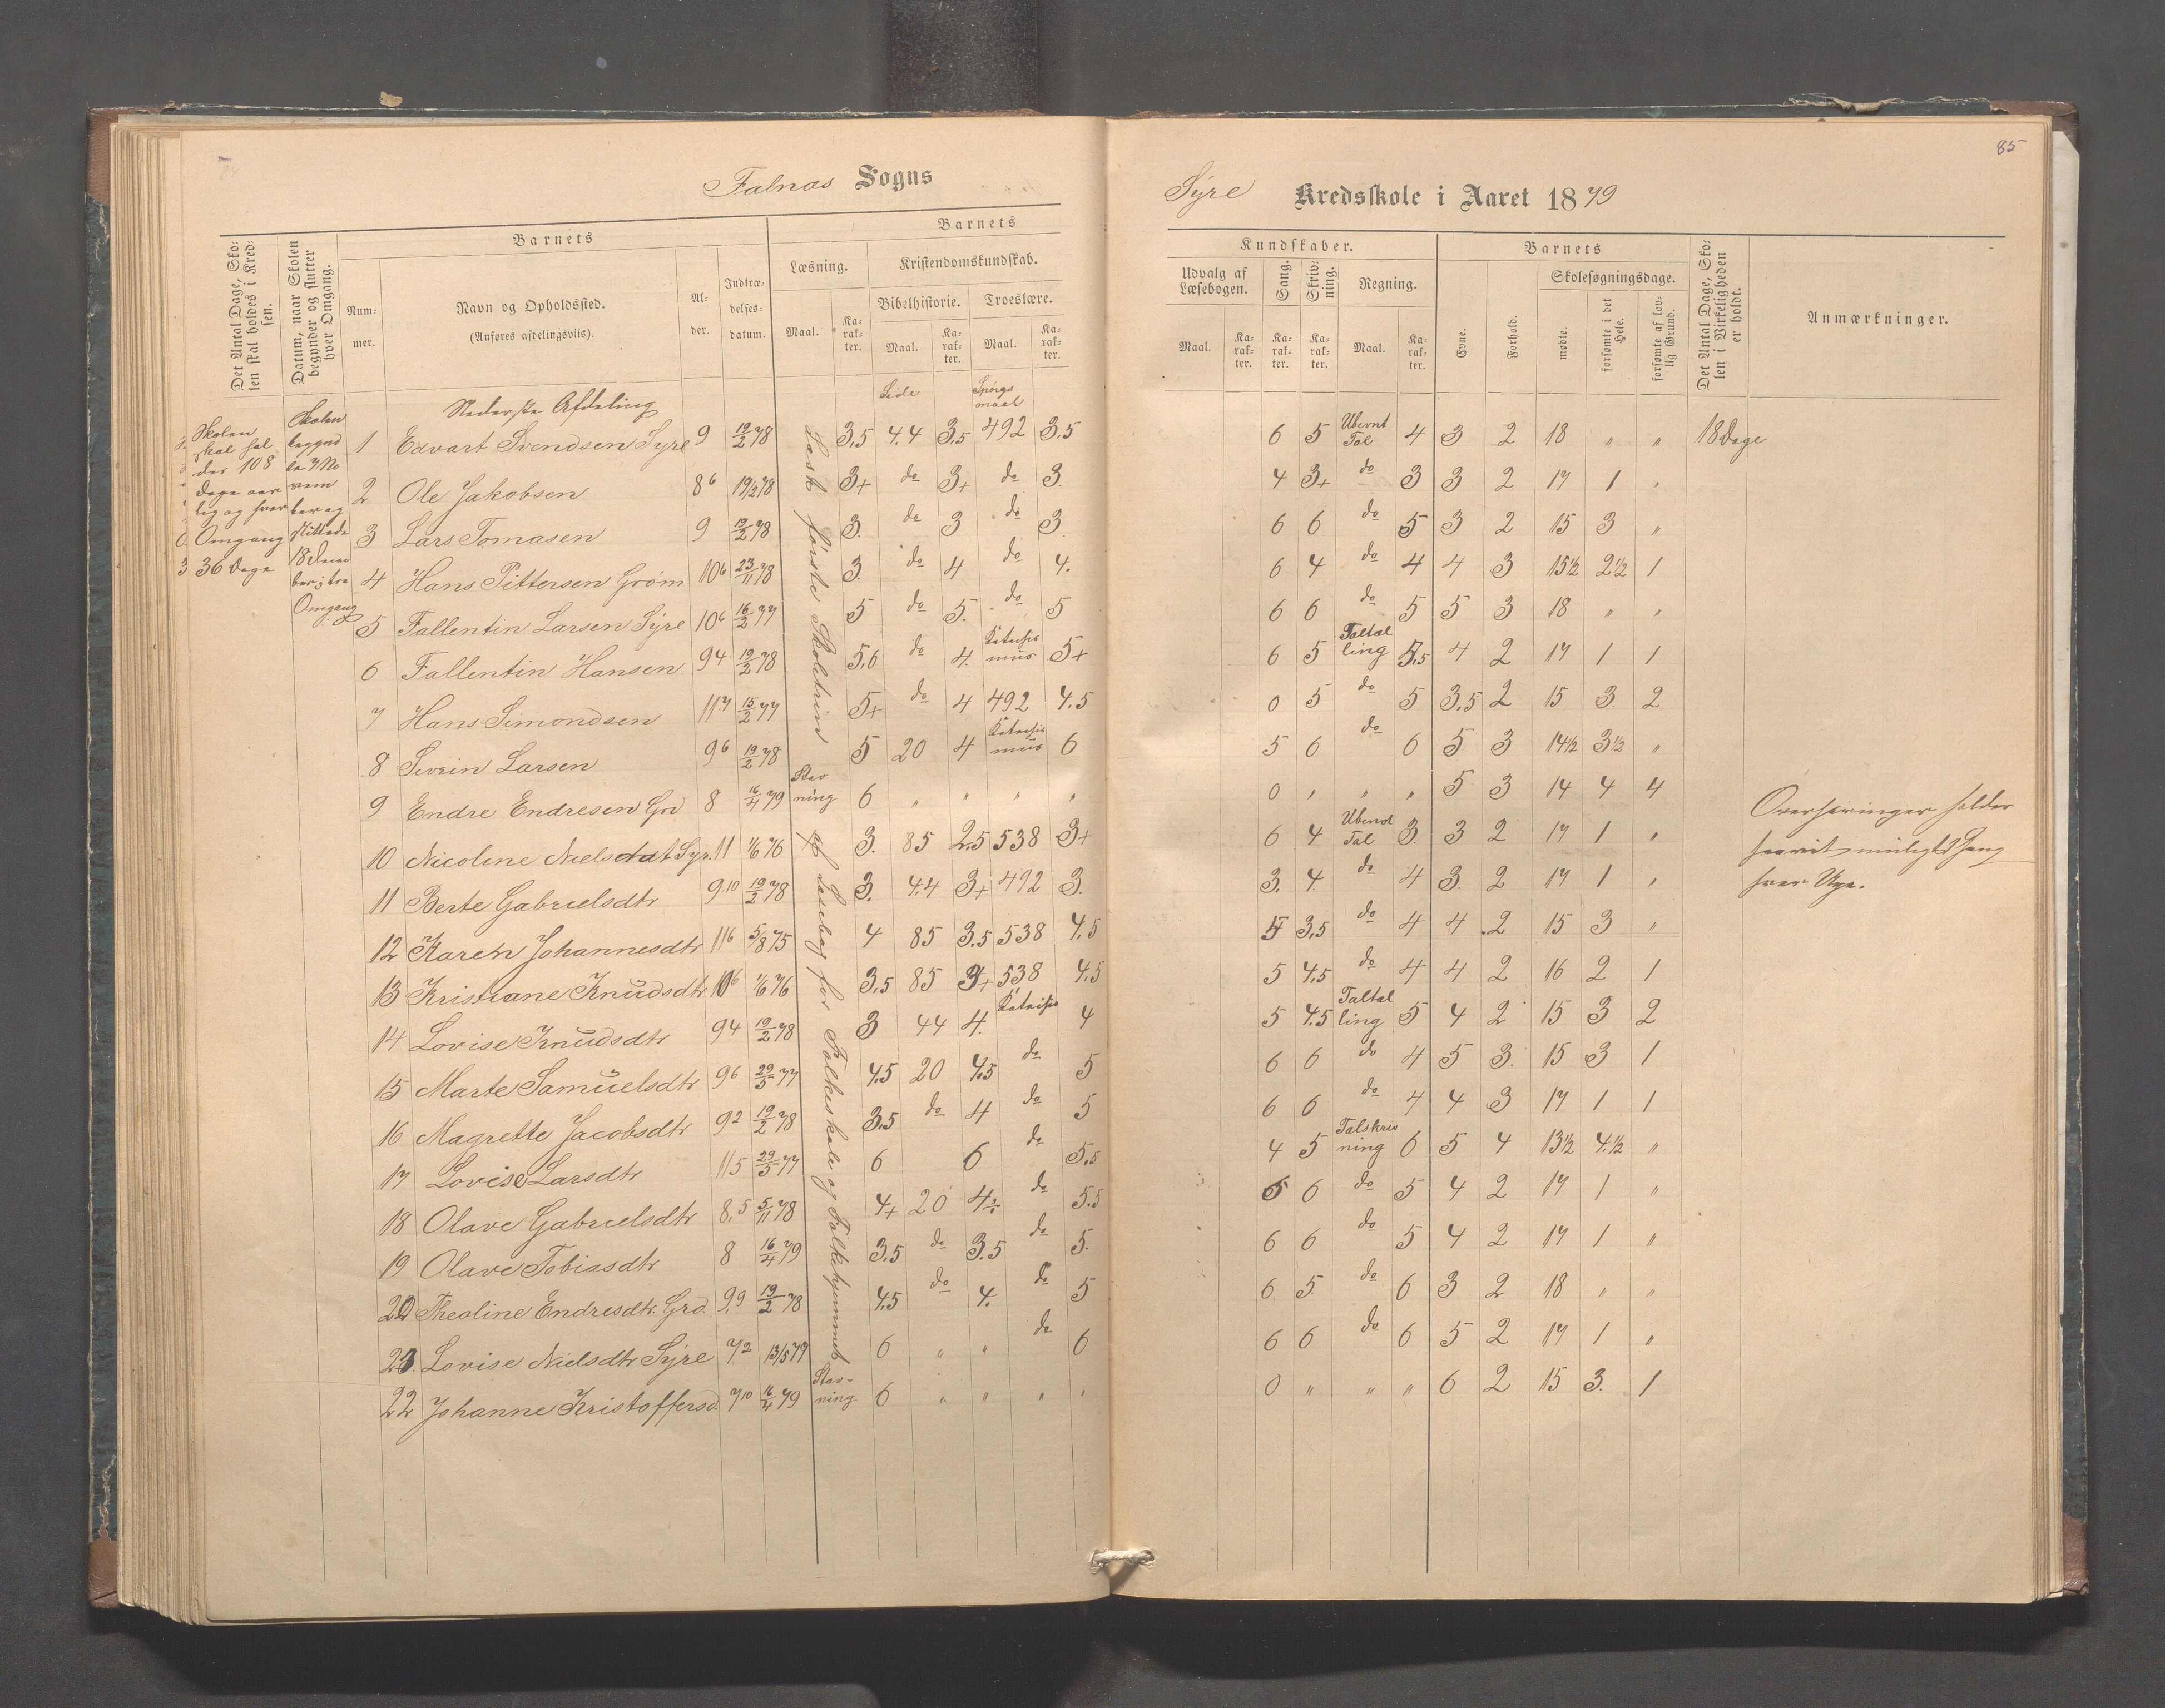 85
Falnæs Sogns
Syre Kredsskole i Aaret 1879
Det Antal Dage, Skolen skal holdes i Kredsen.
Datum, naar Skolen begynder og slutter hver Omgang.
Barnets
Nummer.
Navn og Opholdssted.
(Anføres afdelingsviis).
Alder.
Indtrædelsesdatum.
Barnets
Læsning.
Kristendomskundskab.
Bibelhistorie.
Troeslære.
Maal. Karakter. Maal. Karakter. Maal. Karakter.
Kundskaber.
Udvalg af Læsebogen.
Sang.
Skrivning.
Regning.
Maal. Karakter. Karakter. Karakter. Maal. Karakter.
Barnets
Evne.
Forhold.
Skolesøgningsdage.
mødte.
forsømte i det Hele.
forsømte af lovlig Grund.
Det Antal Dage, Skolen i Virkeligheden er holdt.
Anmærkninger.
Skolen
skal hol
des 108
Dage aar
lig og hver
Omgang
36 Dage
Skolen
begynd
te 7 No
vem
ber og
sluttede
18 Decem
ber; tre
Omgang
Nederste Afdeling
Side
Spørgs
maal
Læst første Skoletrin af Læsebog for Folkeskole og Folkehjemmet
1 Edvart Svendsen Syre 9 19/2 78 3,5 4.4 3,5 492 3,5 6 5 Ubevnt Tal 4 3 2 18 " " 18 Dage
2 Ole Jakobsen 8 6 19/2 78 3+ do 3+ do 3. 4 3+ do 3 3 2 17 1 "
3 Lars Tomasen 9 19/2 78 3. do 3 do 3 6 6 do 5 3 2 15 3 "
4 Hans Pittersen Grøm 10 6 23/11 78 3. do 4 do 4. 6 4 do 4 4 3 15 1/2 2 1/2 1
5 Fallentin Larsen Syre 10 6 16/2 77 5 do 5. do 5 6 6 do 5 5 3 18 " "
6 Fallentin Hansen 9 4 19/2 78 5,6 do 4. Katekis mus 5+ 6 5 Taltæl ling 5,5 4 2 17 1 1
7 Hans Simondsen 11 7 15/2 77 5+ do 4 492 4.5 0 5 do 5 3,5 2 15 3 2
8 Sivrin Larsen 9 6 19/2 78 5 20 4 Katekis mus 6 5 6 do 6 5 3 14 1/2 3 1/2 "
9 Endre Endresen Grd 8 16/4 79 Stav ning 6 " " " " 0 " " " 5 3 14 4 4
10 Nicoline Nielsdat Syr. 11 1/6 76 3. 85 2.5 538 3+ 6 4 Ubevnt Tal 3. 3 2 17 1 "
11 Berte Gabrielsdtr 9.10 19/2 78 3. 4.4 3+ 492 3. 3. 4. do 4 3. 2 17 1 "
12 Karen Johannesdtr 11 6 5/8 75 4 85 3.5 538 4,5 5 3,5 do 4 4 2 15 3 "
13 Kristiane Knudsdtr 10 6 1/6 76 3,5 85 3+ 538 4,5 5 4,5 do 4 4 2 16 2 1
14 Lovise Knudsdtr 9 4 19/2 78 3 44 4. Katekis 4 5 4.5 Taltæl ling 5 4 2 15 3 2
15 Marte Samuelsdtr 9 6 29/5 77 4,5 20 4,5 do 5 6 6 do 4 5 3. 15 3 1
16 Magrette Jacobsdtr 9 2 19/2 78 3,5 do 4 do 5 6 6 do 4 4 3 17 1 1
17 Lovise Larsdtr 11 5 29/5 77 6 6 do 5,5 4 5 Talskriv ning 6 5 4 13 1/2 4 1/2 "
18 Olave Gabrielsdtr 8,5 5/11 78 4+ 20 4+ do 5.5 5 6 do 5 4 2 17 1 "
19 Olave Tobiasdtr 8 16/4 79 3,5 do 3.5 do 5. 6 6 do 5 4 2 17 1 "
20 Theoline Endresdtr. Grd. 9,9 19/2 78 4,5 do 4. do 5 6 5. do 6 3 2 18 " "
23. Lovise Nielsdtr Syre 7 2 13/5 79 6 " " do 6 6 6 do 6 5 2 17 1 "
22 Johanne Kristoffersd. 7 10 16/4 79 Stav- ning 6 " " " " 0 " " " 6 2 15 3. 1
Overhøringer holdes
saavit muligt Gang
hver Uge.